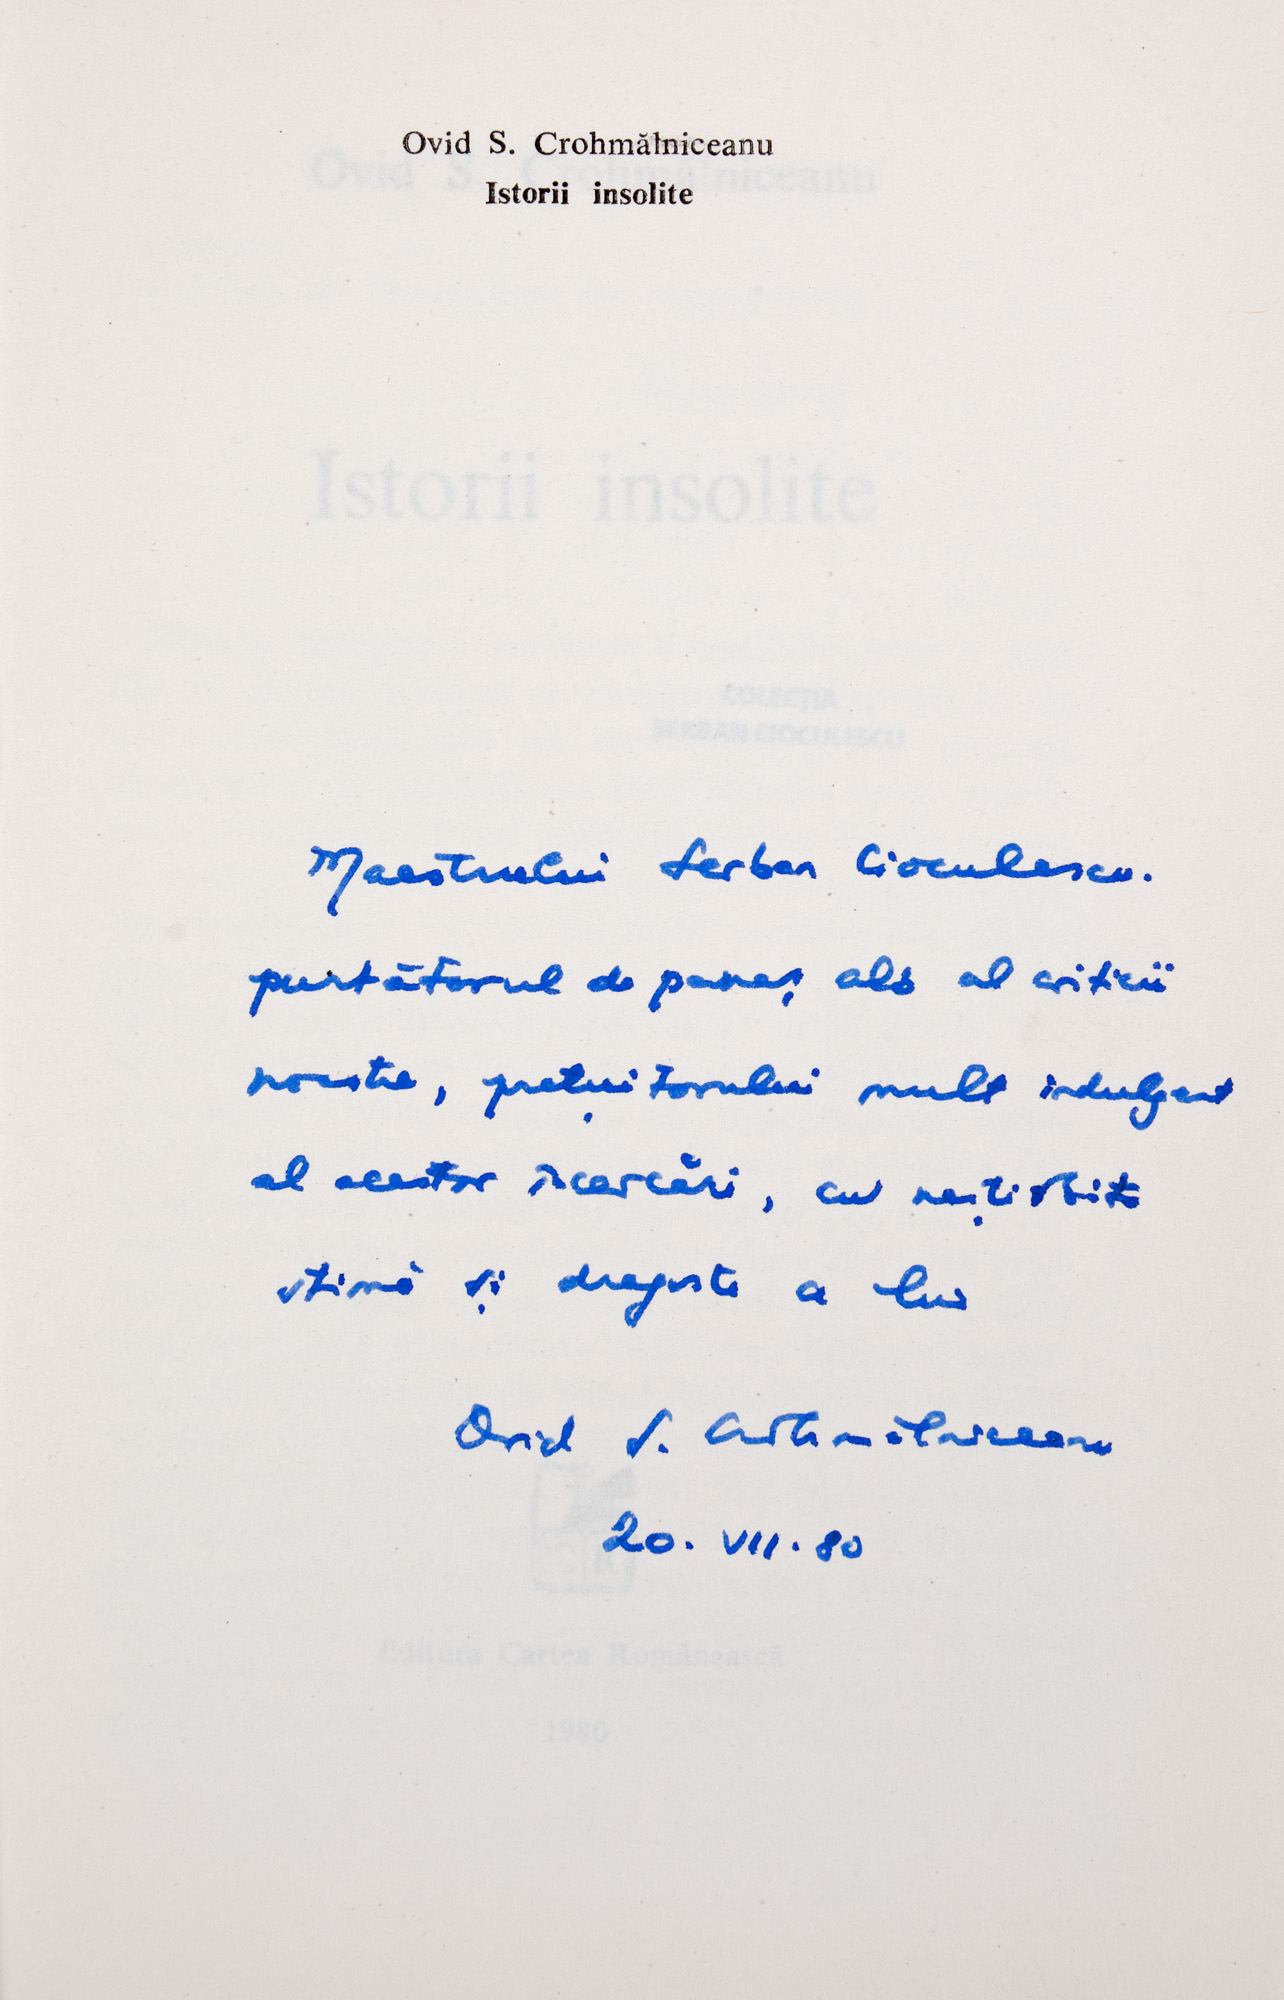 Ovid S. Crohmălniceanu
Istorii insolite
Istorii insolite
COLECȚIA
ȘERBAN CIOCULESCU
Maestrului Șerban Cioculescu.
purtătorul de panaș alb al criticii
noastre, prețuitorului mult indulgent
al acestor încercări, cu neștirbita
stimă și dragoste a lui
Ovid S. Crohmălniceanu
20. VII. 80
Editura Cartea Românească
1980